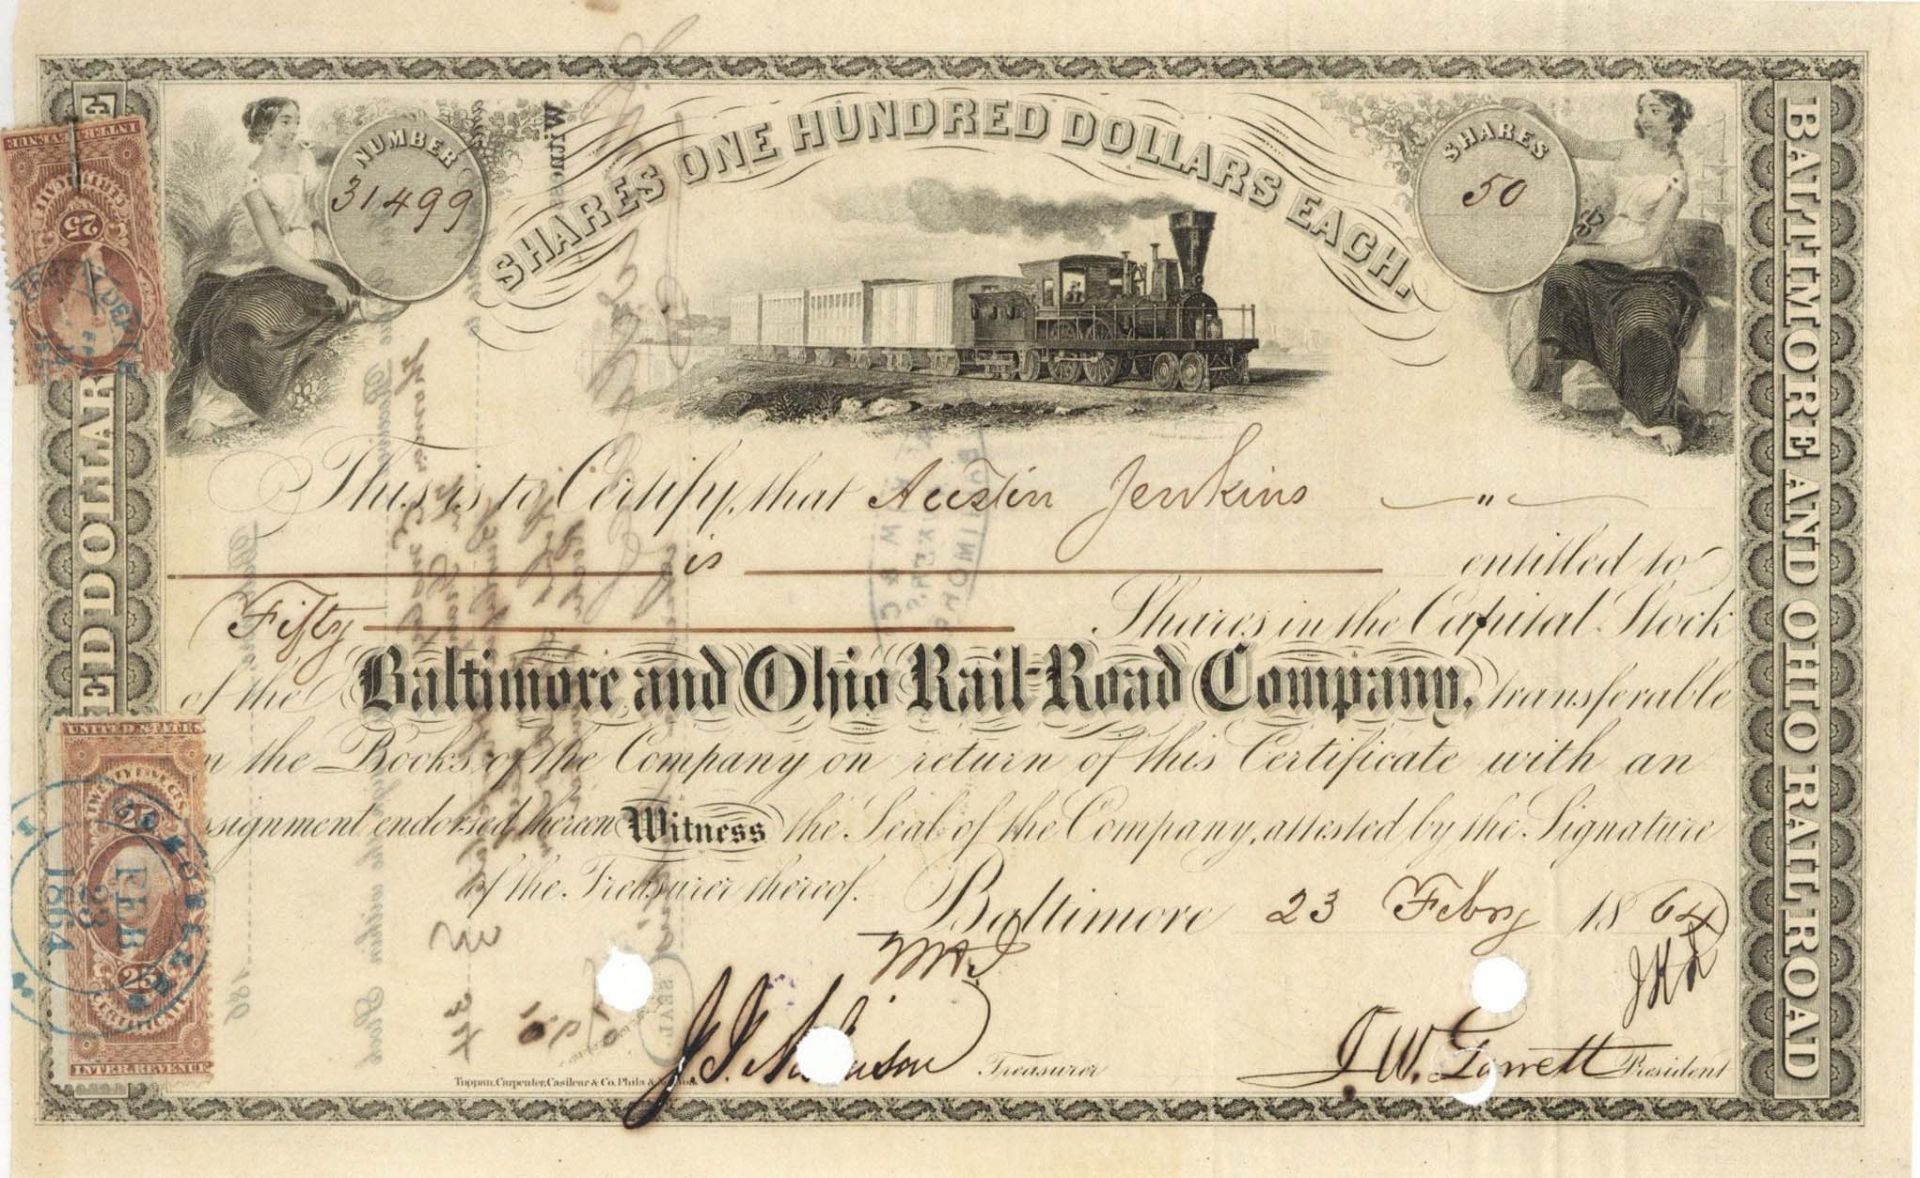 SHARES ONE HUNDRED DOLLARS EACH.
NUMBER
31499
SHARES
50
This is to Certify, that Austin Jenkins "
is entitled to
Fifty Shares in the Capital Stock
of the Baltimore and Ohio Rail-Road Company, transferable
the Books of the Company on return of this Certificate with an
endorsed thereon Witness the Seal of the Company, attested by the Signature
of the Treasurer thereof.
Baltimore 23 Feby 1864
SEAL
Treasurer
J. W. Garrett President
Toppan, Carpenter, Casilear & Co. Phila &
BALTIMORE AND OHIO RAIL ROAD
ED DOLLAR
INTER. REVENUE
25
UNITED STATES
TWENTY FIVE CTS.
25
CERTIFICATE
INTER. REVENUE
FEB
23
1864